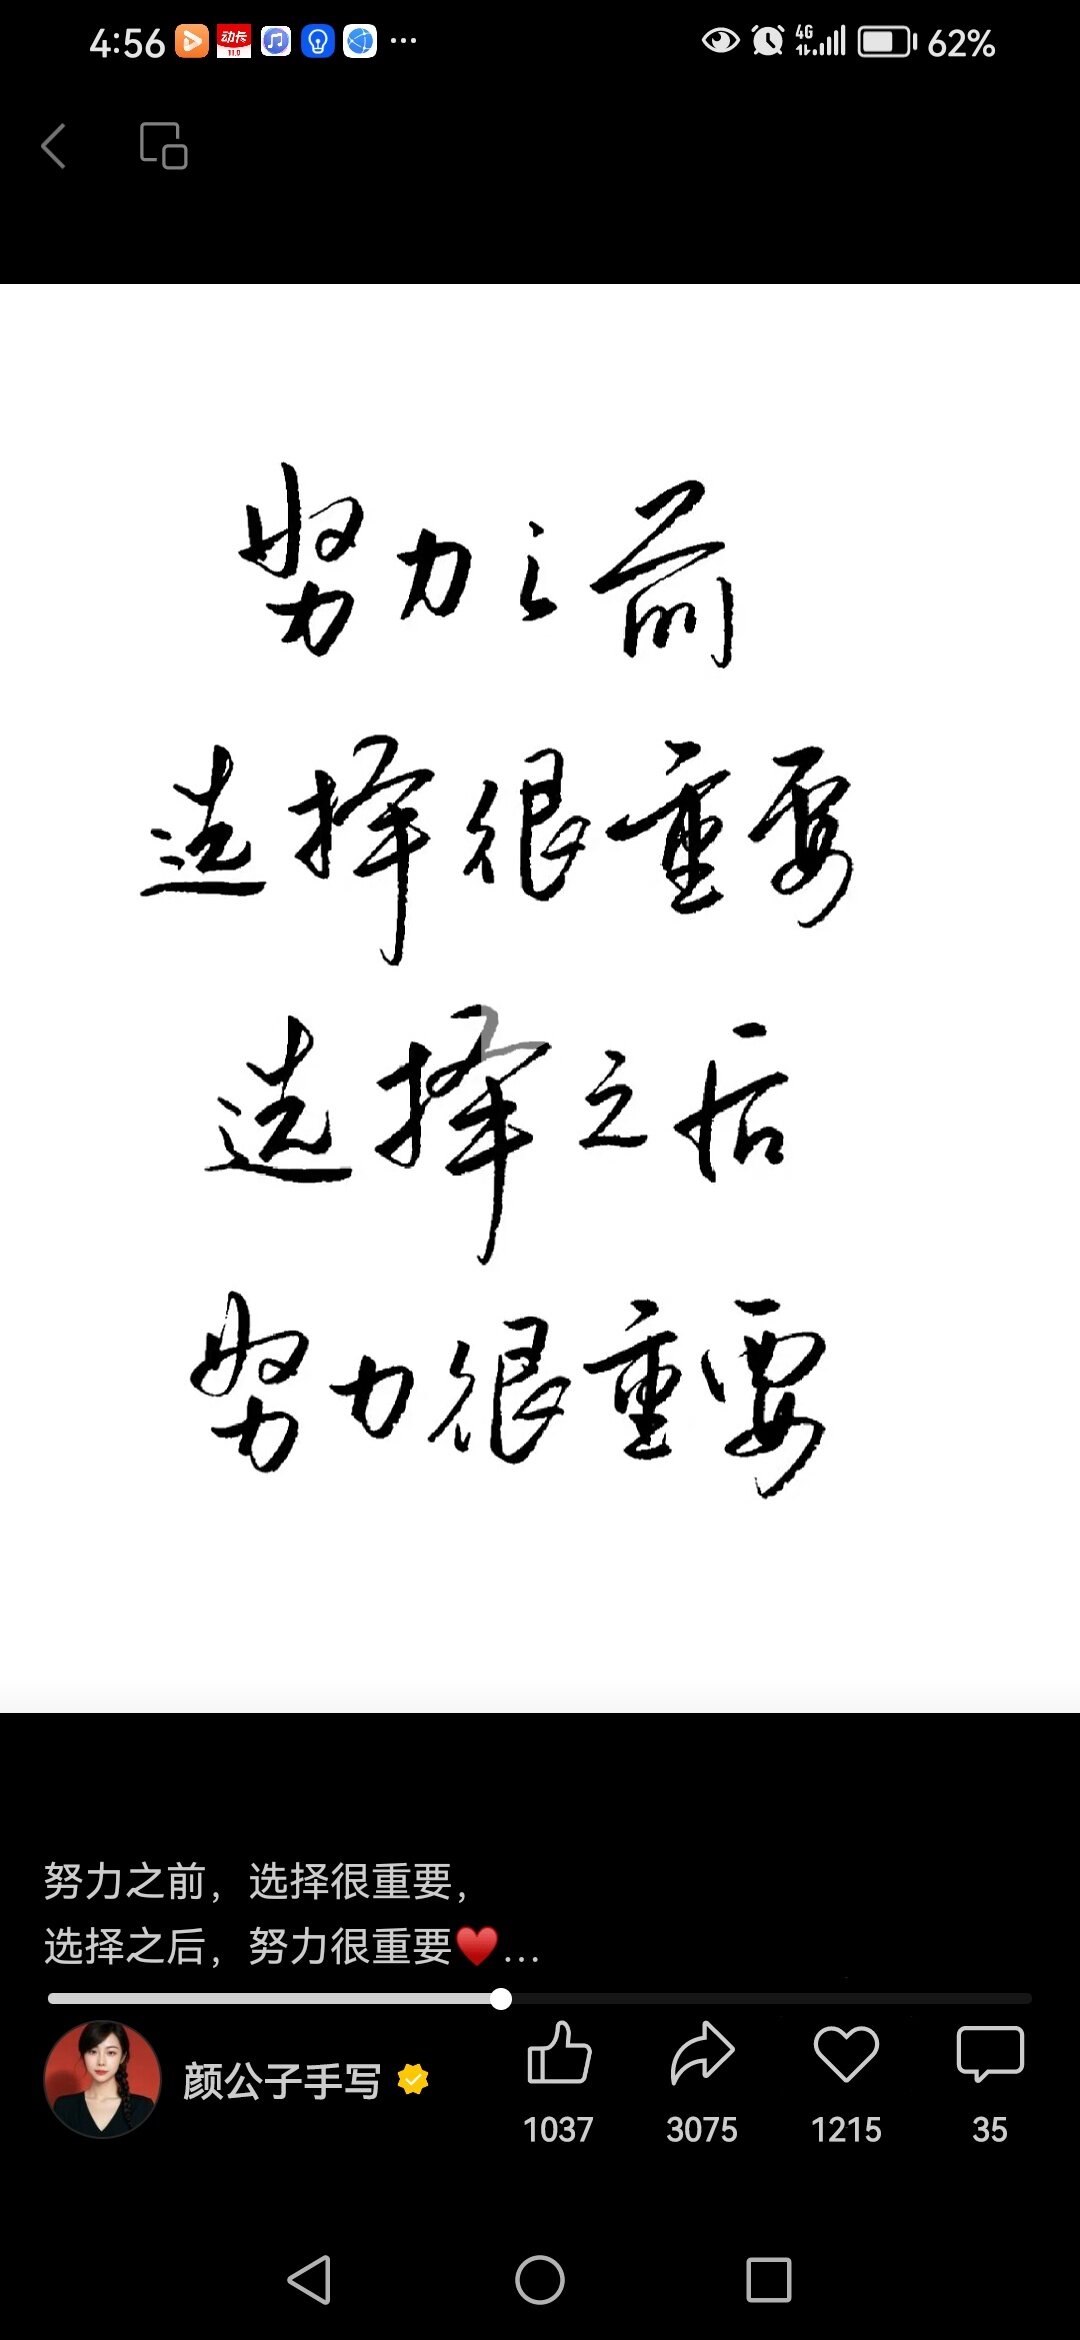 4:56
动卡
11.0
4G
62%
努力之前
选择很重要
选择之后
努力很重要
努力之前，选择很重要，
选择之后，努力很重要♥️...
颜公子手写
1037
3075
1215
35